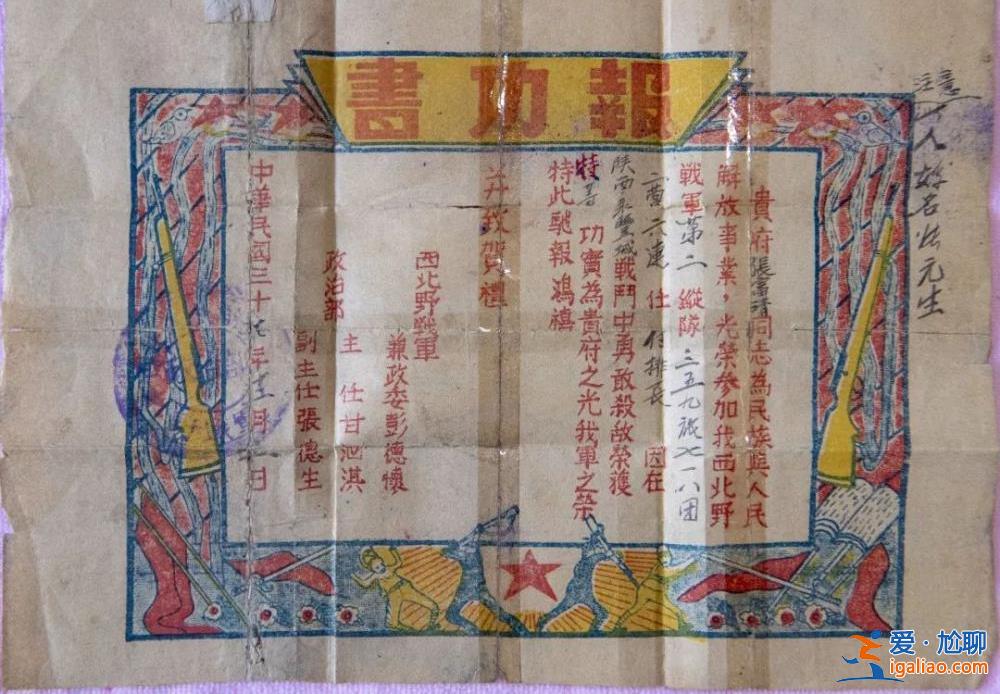 報功書
貴府張富清同志為民族與人民
解放事業，光榮參加我西北野
戰軍第二縱隊三五九旅七一八团
二营六連任付排長因在
陝西永豐城戰鬥中勇敢殺敵榮獲
特等功實為貴府之光我軍之榮
特此馳報鴻禧
并致賀禮
西北野戰軍
兼政委彭德懷
政治部
主任甘泗淇
副主任張德生
中華民國三十七年月日
注意
人姓名元生
爱·尬聊
igaliao.com